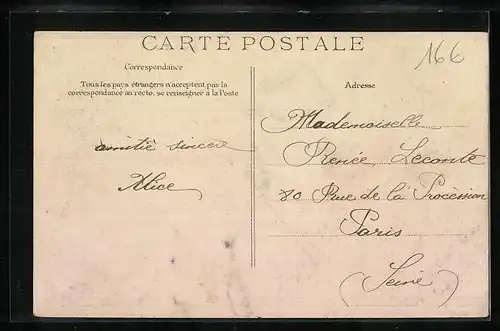 CARTE POSTALE
166
Correspondance
Tous les pays étrangers n'acceptent pas la
correspondance au recto, se renseigner à la Poste
Adresse
amitié sincère
Alice
Mademoiselle
Renée Leconte
80 Rue de la Procession
Paris
(Seine)